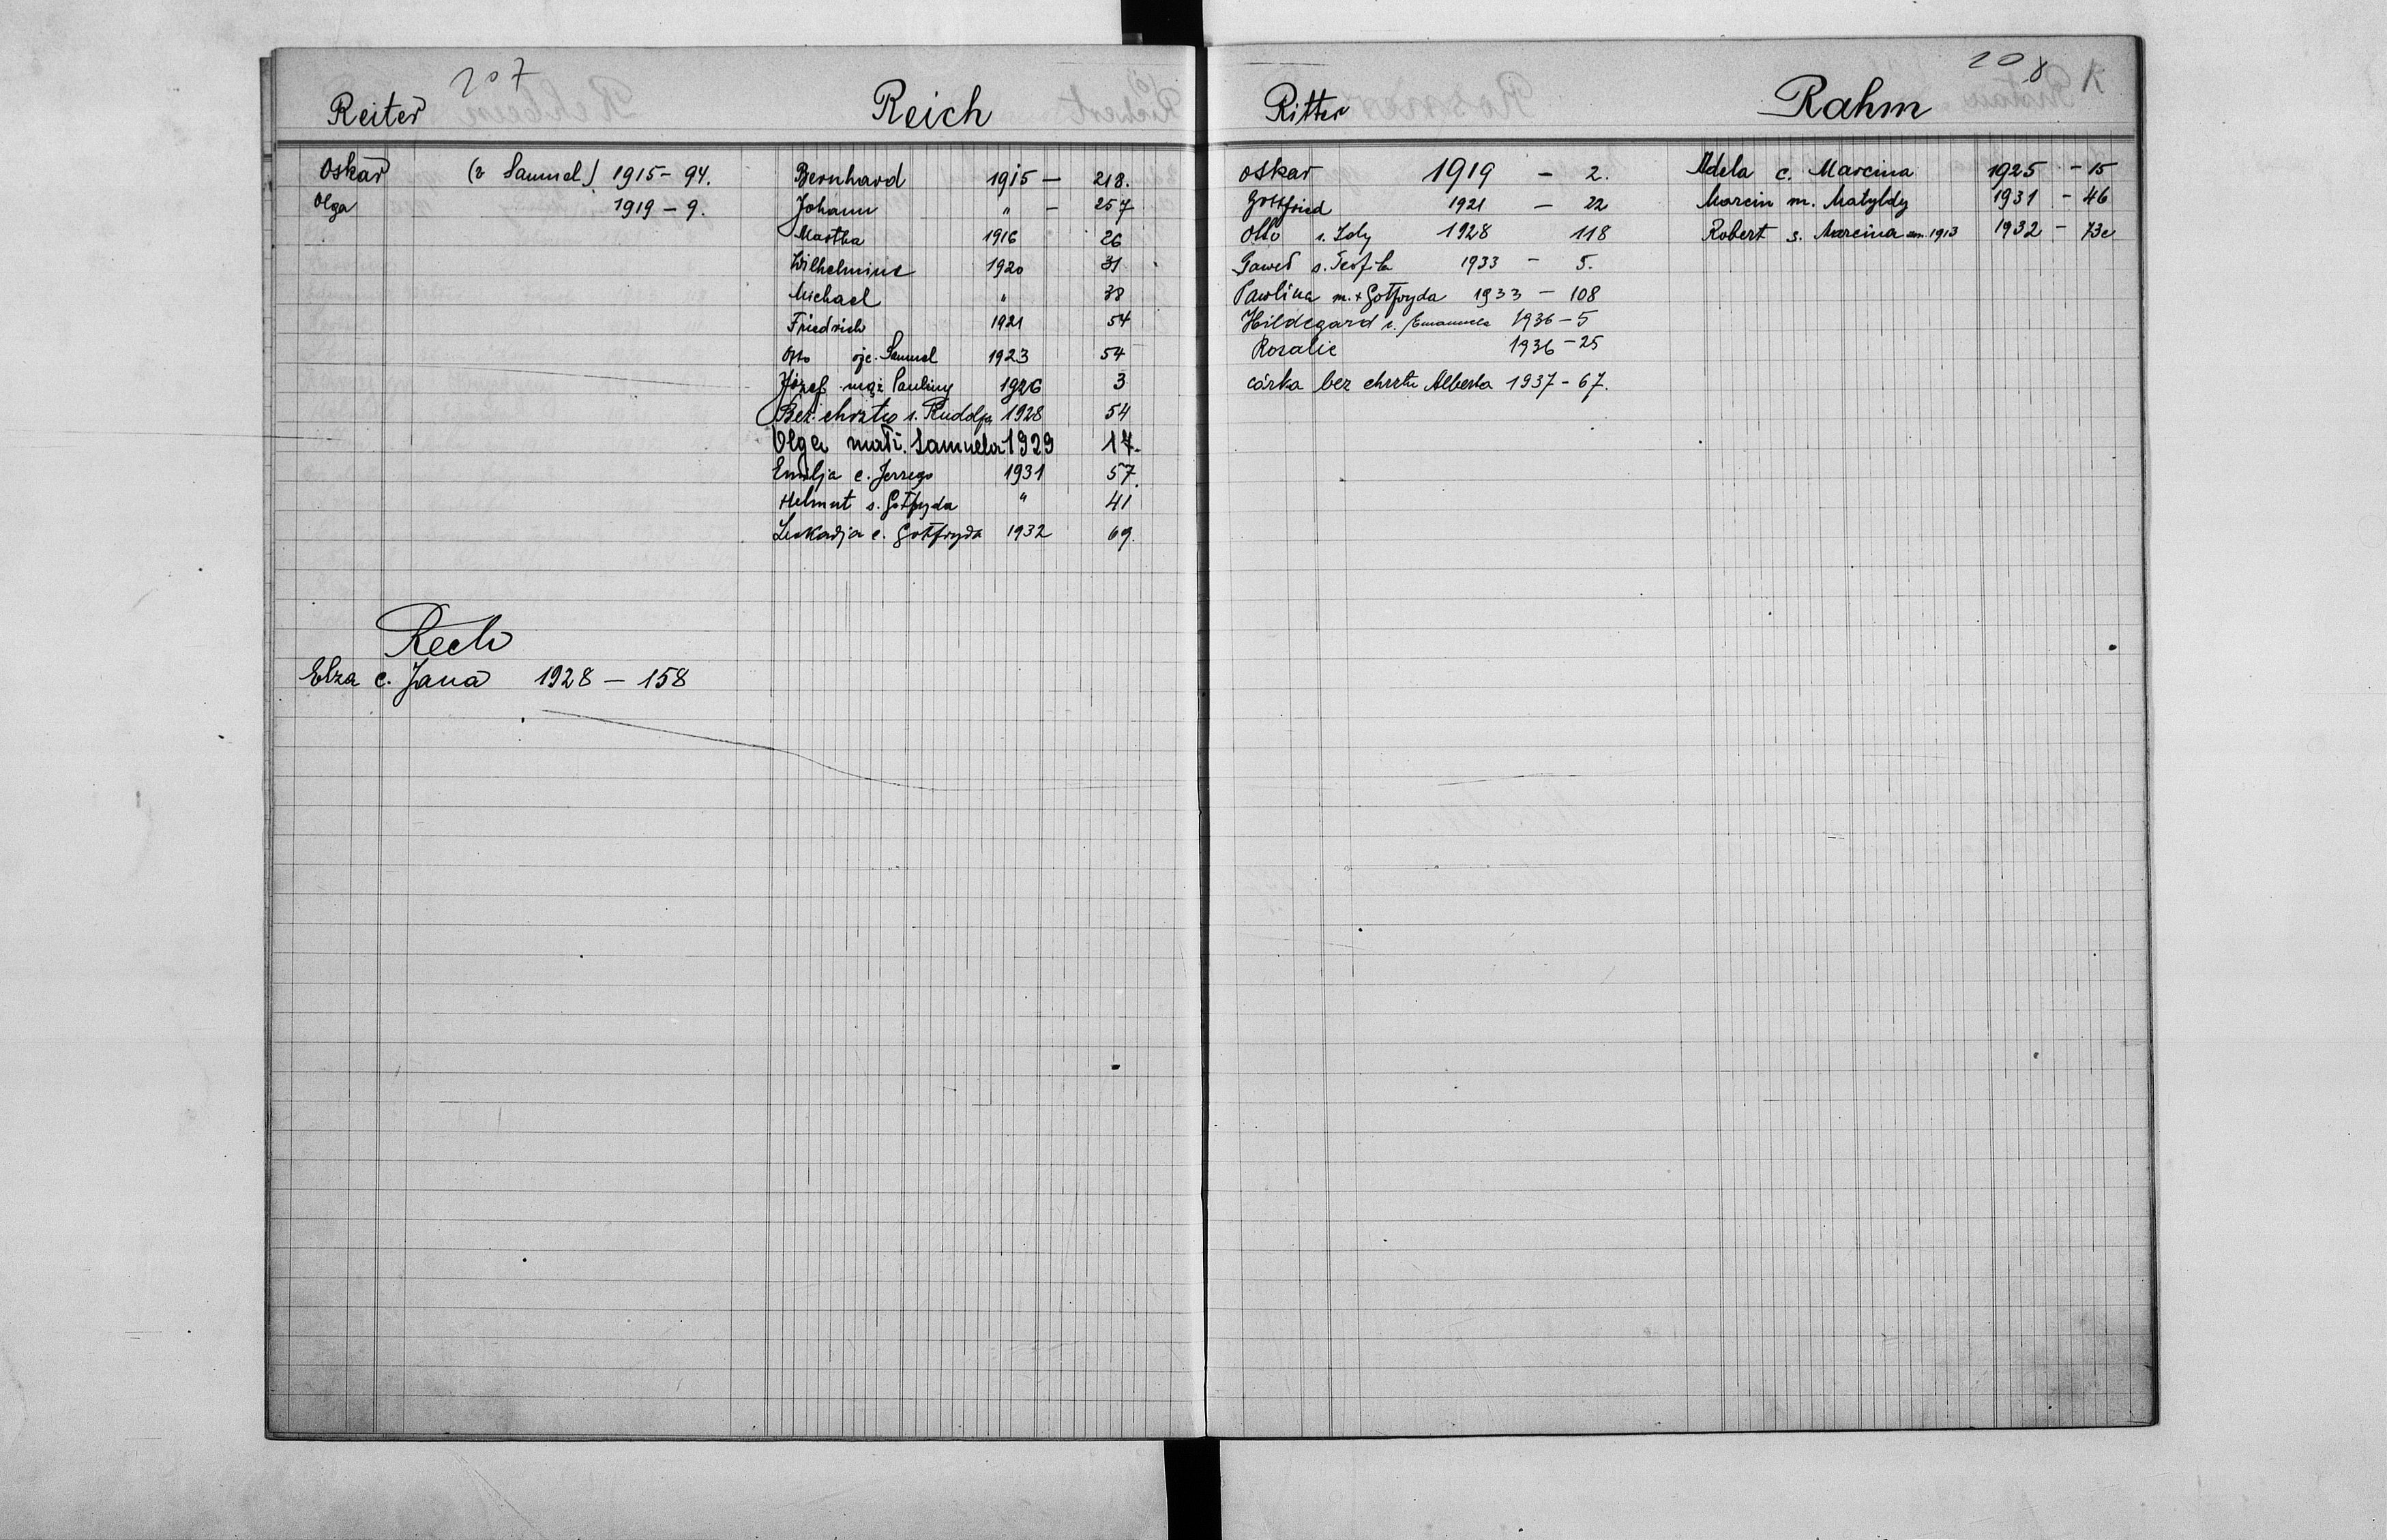 207
Reiter
Oskar (v Samuel) 1915 - 94.
Olga 1919 - 9.
Rech
Elza c. Jana 1928 - 158
Reich
Bernhard 1915 - 218.
Johann " - 257
Martha 1916 26
Wilhelmine 1920 31
Michael " 38
Friedrich 1921 54
Otto ojc. Samuel 1923 54
Józef mąż Pauliny 1926 3
Bez chrztu s. Rudolfa 1928 54
Olga małż. Samuela 1929 17.
Emilja c. Jerzego 1931 57.
Helmut s. Gotfryda " 41
Leokadja c. Gotfryda 1932 69.
208
R
Ritter
Oskar 1919 - 2.
Gottfried 1921 - 22
Otto s. Idy 1928 118
Paweł s. Teofila 1933 - 5.
Paulina m. + Gotfryda 1933 - 108
Hildegard c. Emanuela 1936 - 5
Rozalie 1936 - 25
córka bez chrztu Alberta 1937 - 67.
Rahm
Adela c. Marcina 1925 - 15
Marcin m. Matyldy 1931 - 46
Robert s. Marcina 1913 1932 - 73c